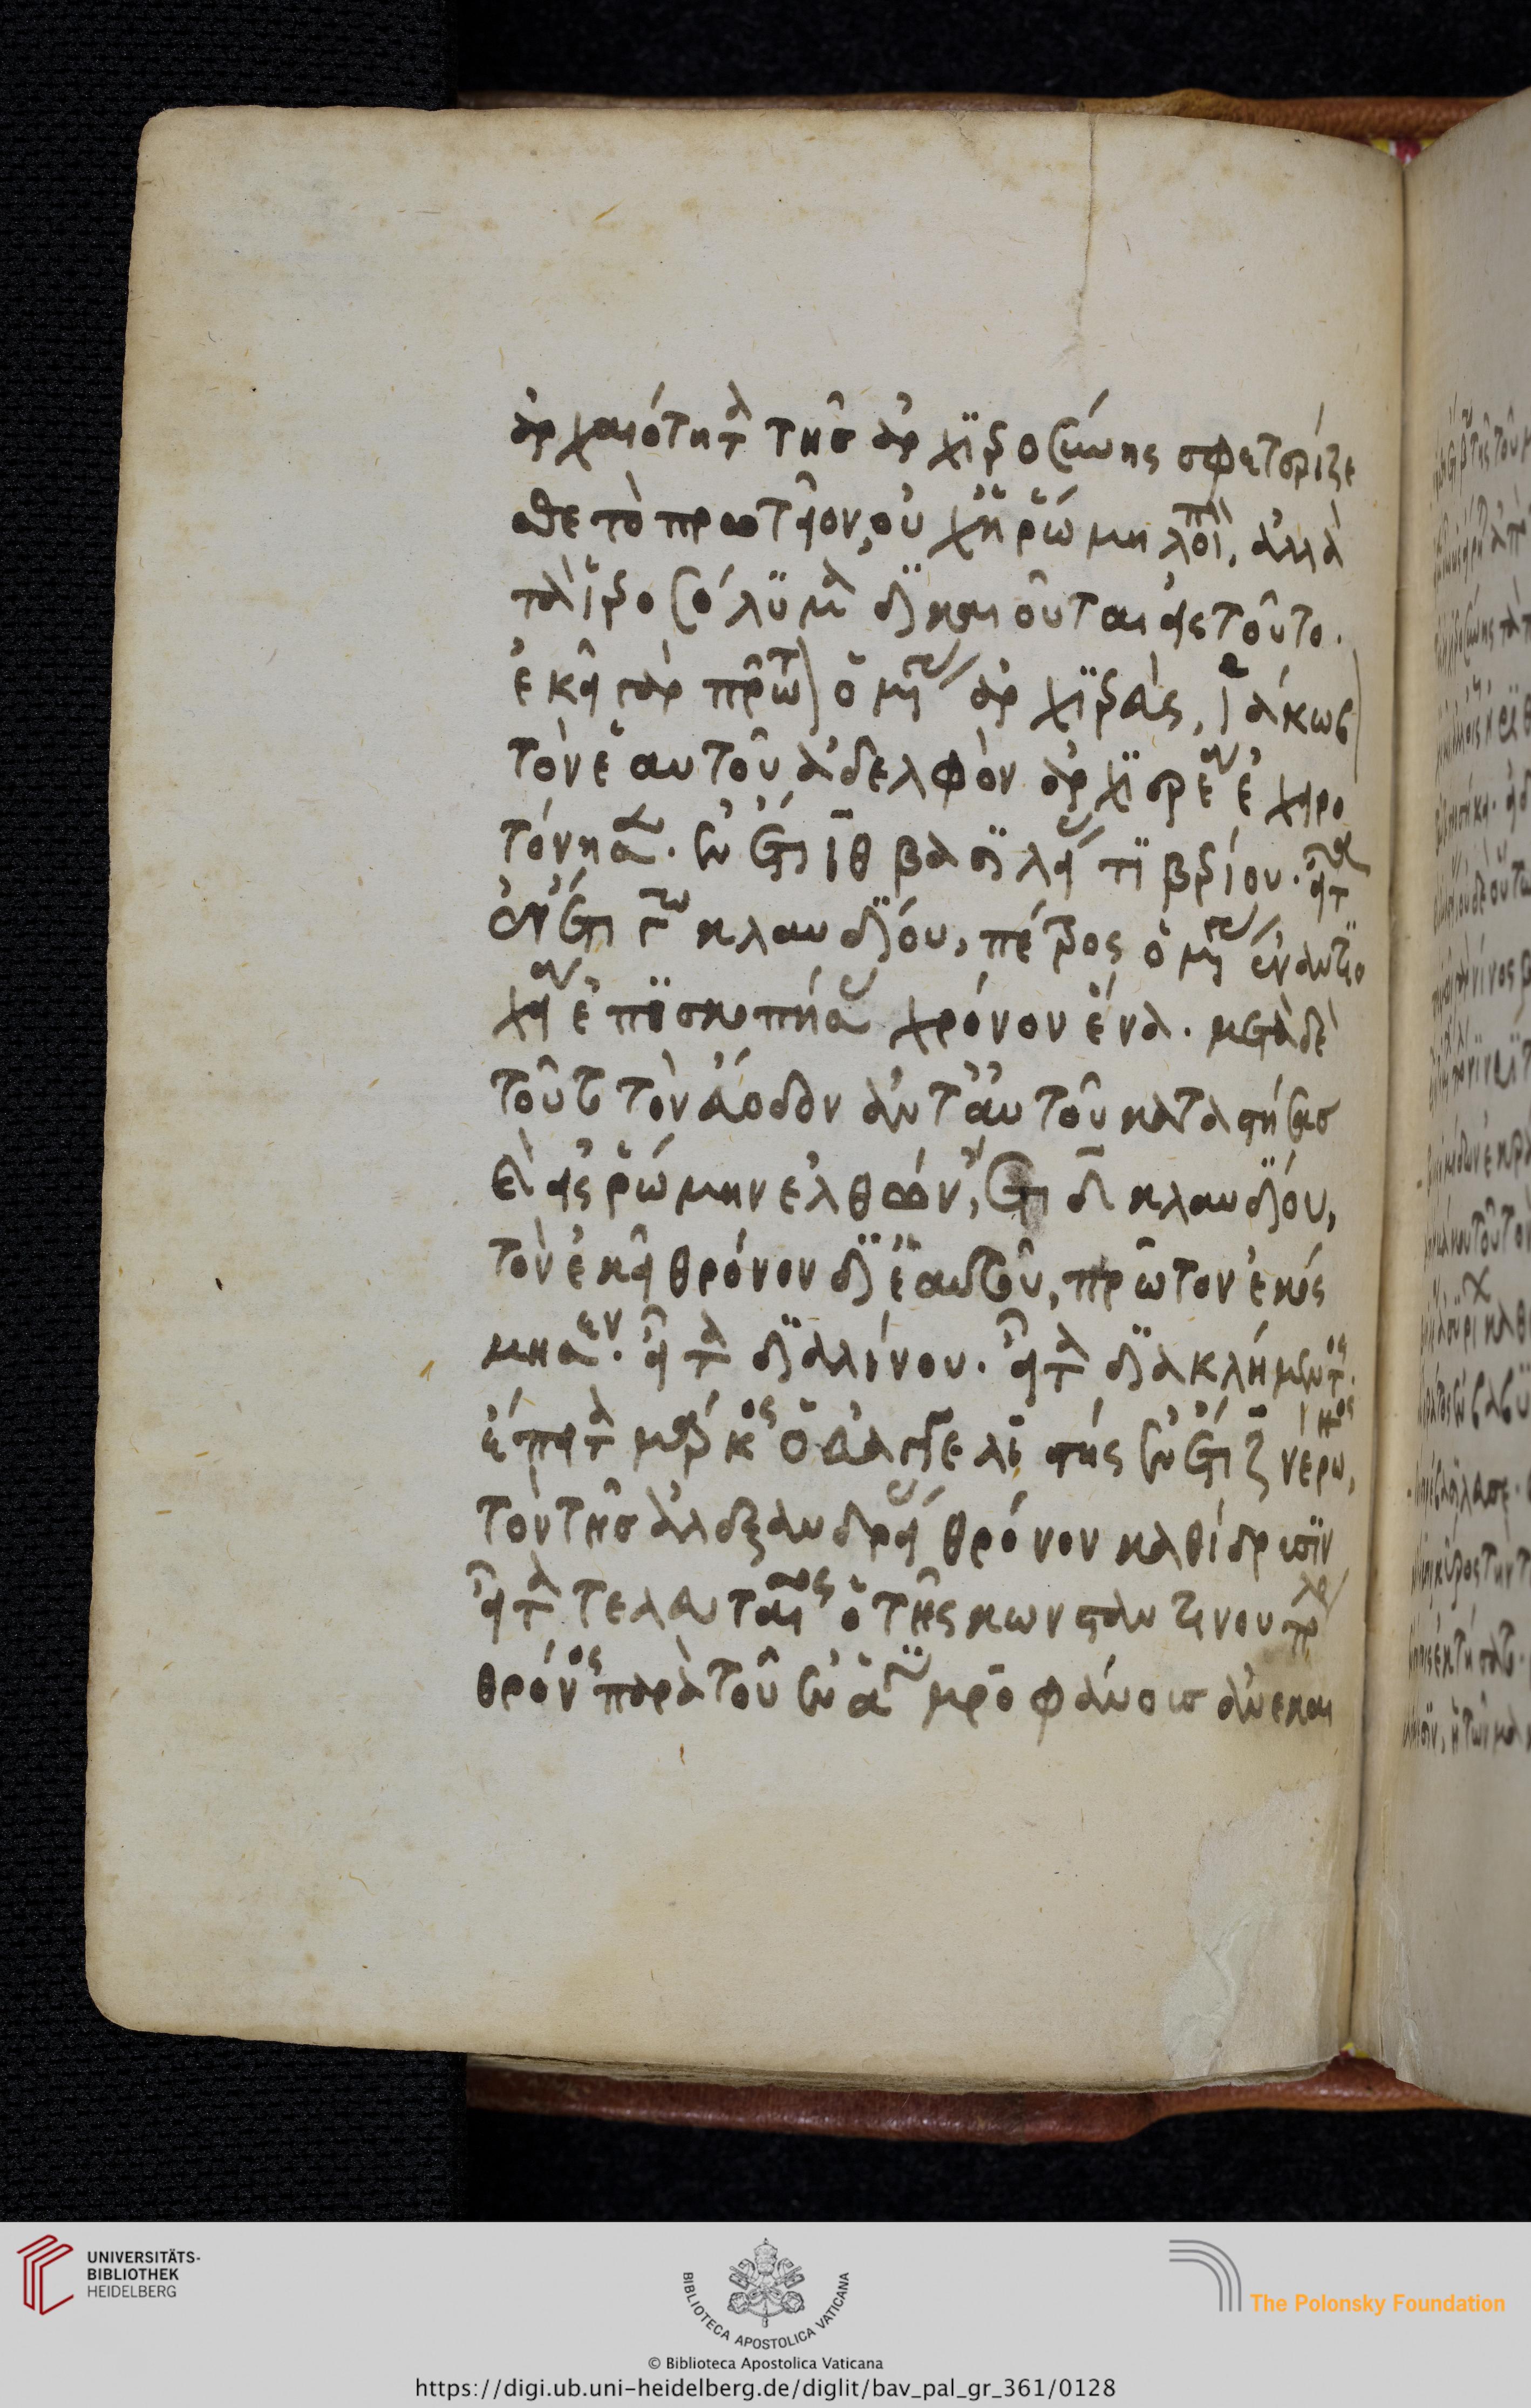 ἀρχαιότητα τῆς ἀρχιεροσύνης σφετερίζε
σθε τὸ πρωτεῖον, οὐχ ἡ ῥώμη λοιπὸν, ἀλλὰ
τὰ ἱεροσόλυμα δικαιοῦται εἰς τοῦτο.
ἐκεῖ γὰρ πρῶτον ὁ μέγας ἀρχιερεὺς, ἰάκωβον
τὸν ἑαυτοῦ ἀδελφὸν ἀρχιερέα ἐχειρο
τόνησεν. ἐν ἔτει ιθ βασιλείας τιβερίου. εἶτα
ἐν ἔτει κλαυδίου, πέτρος ὁ μέγας ἐν ἀντιο
χείᾳ ἐπισκοπήσας χρόνον ἕνα. μετὰ δὲ
τοῦτο τὸν εὔοδον ἀντ' αὐτοῦ καταστήσασ
εἰς ῥώμην ἐλθὼν, ἔτει δ κλαυδίου,
τὸν ἐκεῖ θρόνον δι' ἑαυτοῦ, πρῶτον ἐκόσ
μησεν. εἶτα διὰ λίνου. εἶτα διὰ κλήμεντος.
ἔπειτα μάρκος ὁ εὐαγγελιστὴς ἐν ἔτει ζ νέρωνος,
τὸν τῆς ἀλεξανδρείας θρόνον καθίδρυσεν
εἶτα τελευταῖος ὁ τῆς κωνσταντινουπόλεως
θρόνος παρὰ τοῦ ἐν ἁγίοις μητροφάνους ἀνεκαι
UNIVERSITÄTS-
BIBLIOTHEK
HEIDELBERG
BIBLIOTECA APOSTOLICA VATICANA
The Polonsky Foundation
© Biblioteca Apostolica Vaticana
https://digi.ub.uni-heidelberg.de/diglit/bav_pal_gr_361/0128